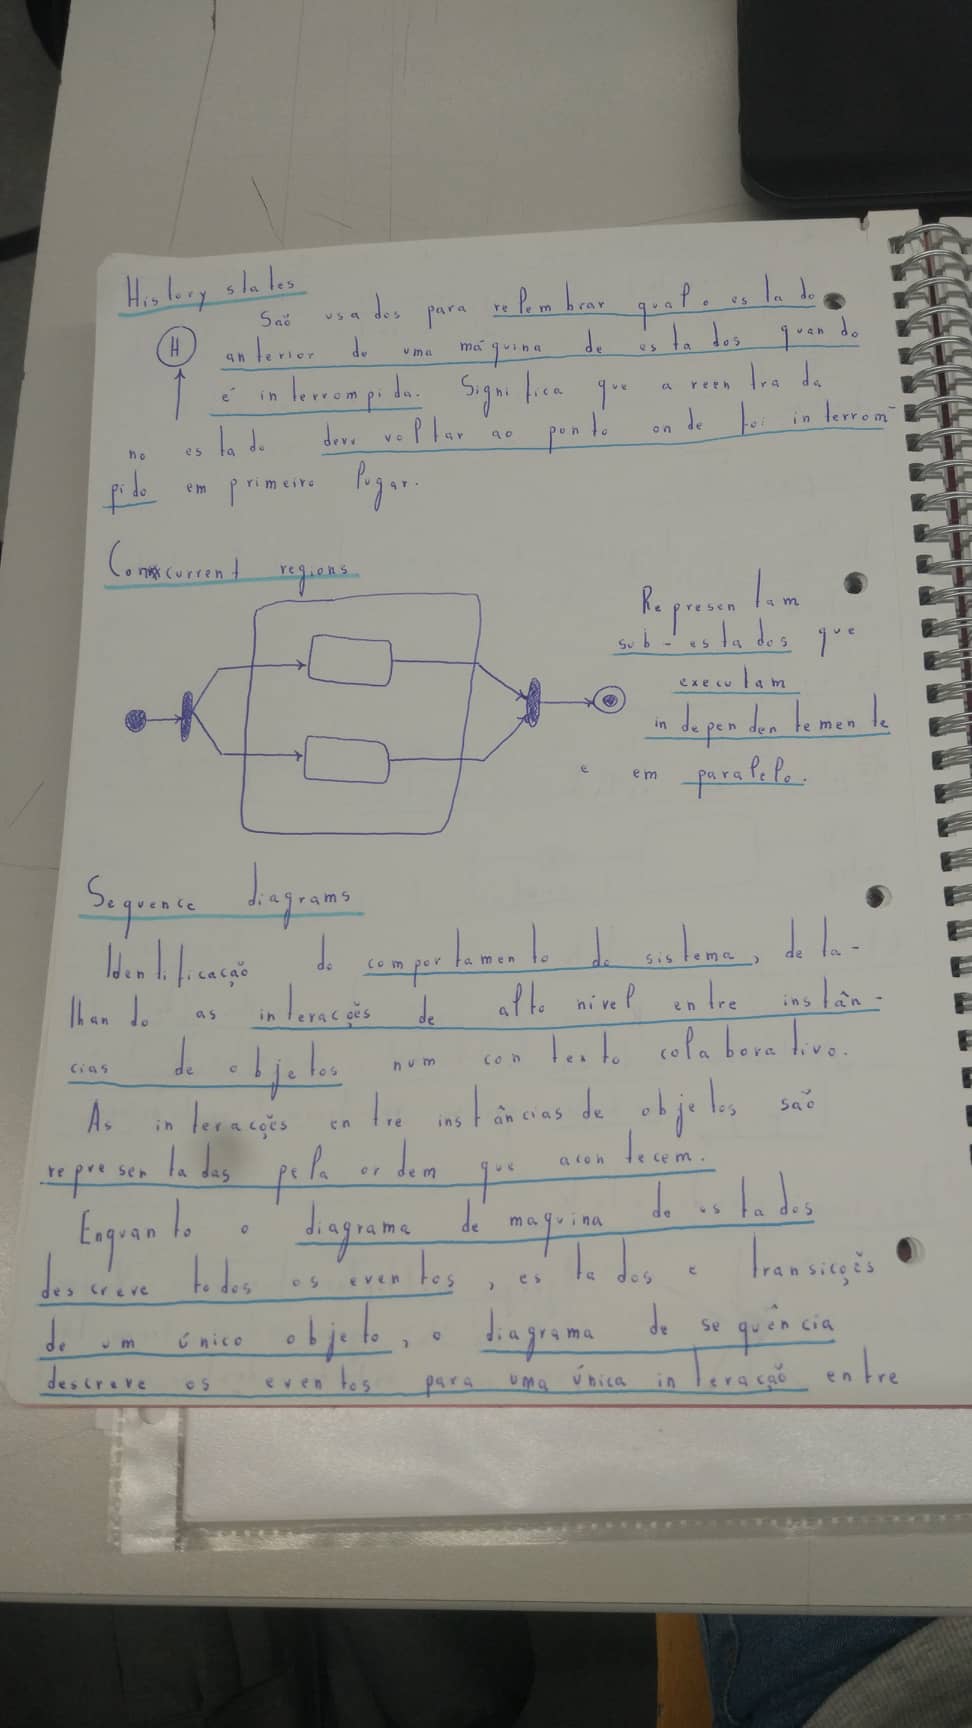 History states
São usados para relembrar qual o estado
H
anterior de uma máquina de estados quando
é interrompida. Significa que a reentrada
no estado deve voltar ao ponto onde foi interrom-
pido em primeiro lugar.
Concurrent regions
Representam
sub-estados que
executam
independentemente
e em paralelo.
Sequence diagrams
Identificação do comportamento do sistema, deta-
lhando as interações de alto nível entre instân-
cias de objetos num contexto colaborativo.
As interações entre instâncias de objetos são
representadas pela ordem que acontecem.
Enquanto o diagrama de maquina de estados
descreve todos os eventos, estados e transições
de um único objeto, o diagrama de sequência
descreve os eventos para uma única interação entre